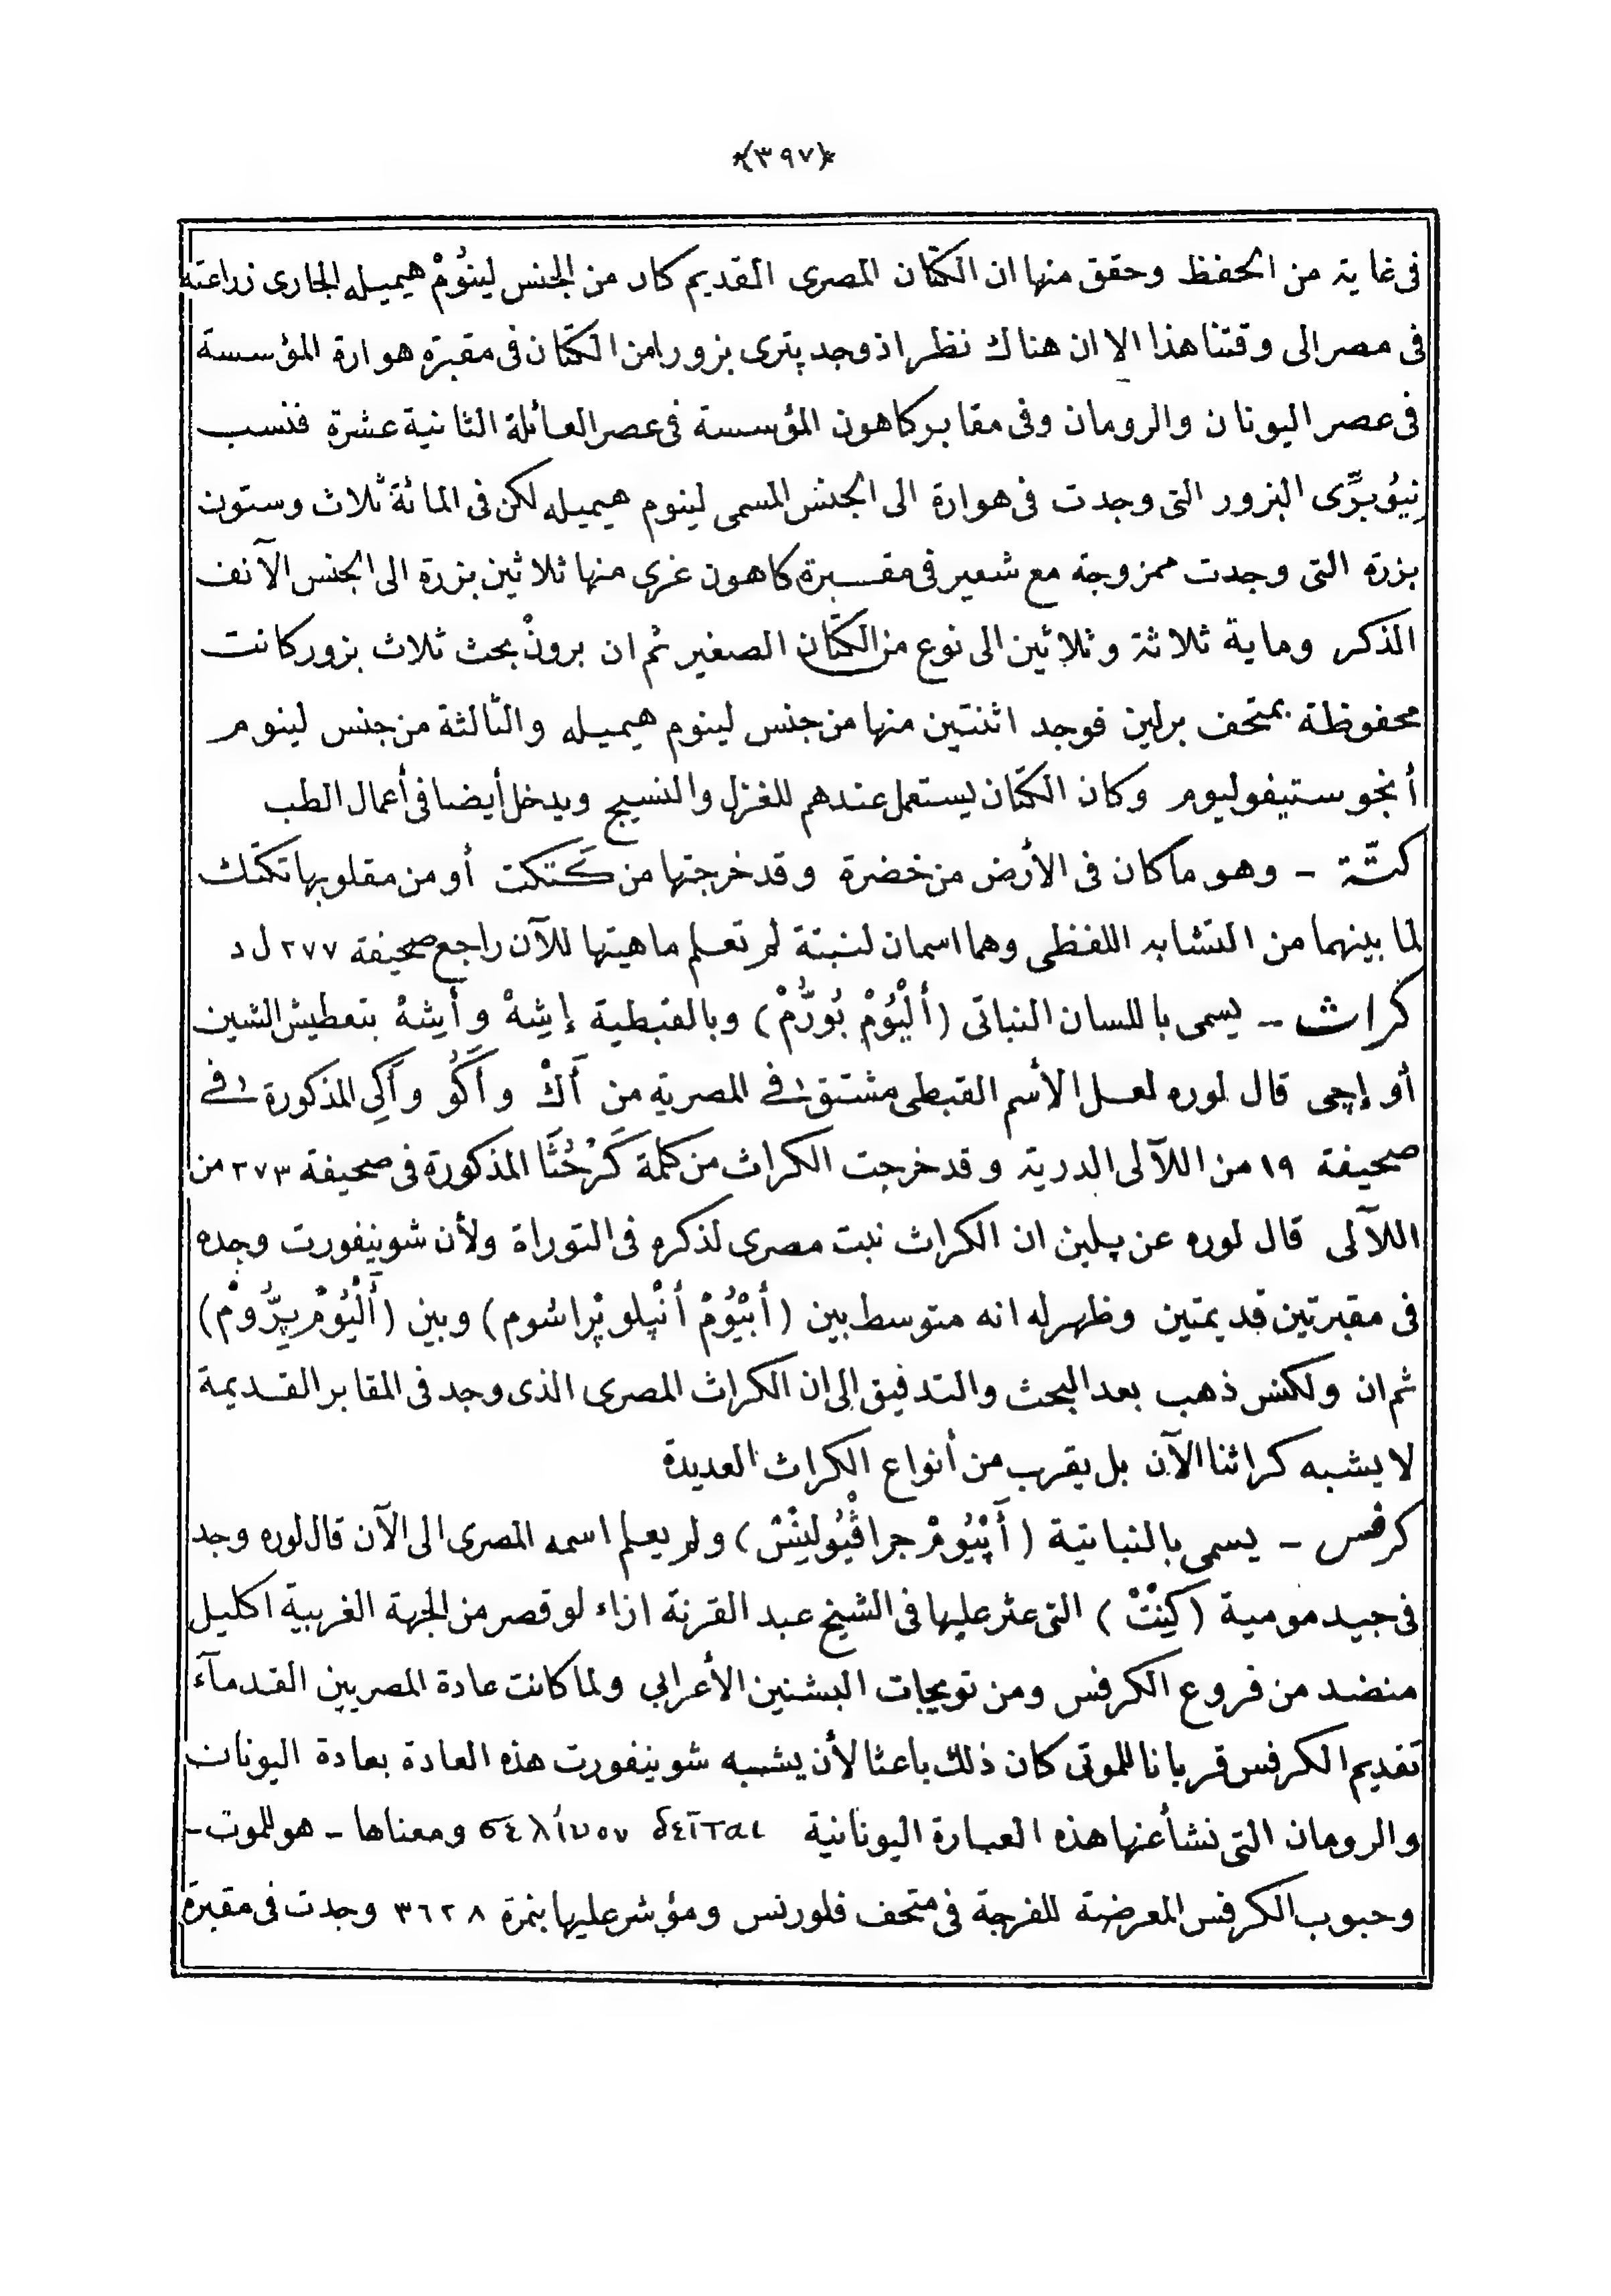 ﴿٣٩٧﴾
فى غاية من الحفظ وحقق منها ان الكتّان المصرى القديم كان من الجنس لينُومْ هيميله الجارى زراعته
فى مصر الى وقتنا هذا الا ان هناك نظرا اذ وجد پترى بزورا من الكتّان فى مقبرة هوارة المؤسسة
فى عصر اليونان والرومان وفى مقابر كاهون المؤسسة فى عصر العائلة الثانية عشرة فنسب
نِيُوبرِّى البزور التى وجدت فى هوارة الى الجنس المسمى لينوم هيميله لكن فى المائة ثلاث وستون
بزرة التى وجدت ممزوجة مع شعير فى مقبرة كاهون عزى منها ثلاثين بزرة الى الجنس الآنف
الذكر وماية ثلاثة وثلاثين الى نوع من الكتّان الصغير ثم ان برونْ بحث ثلاث بزور كانت
محفوظة بمتحف برلين فوجد اثنتين منها من جنس لينوم هيميله والثالثة من جنس لينوم
أنجوستيفوليوم وكان الكتّان يستعمل عندهم للغزل والنسيج ويدخل أيضا فى أعمال الطب
كتّة - وهو ما كان فى الأرض من خضرة وقد خرجتها من كَتكت أو من مقلوبها تكتك
لما بينهما من التشابه اللفظى وهما اسمان لنبتة لم تعلم ماهيتها للآن راجع صحيفة ٢٧٧ ل د
كراث - يسمى باللسان النباتى (أَلْيُومْ بُورُّمْ) وبالقبطية إشِهْ وأَشِهْ بتعطيش الشين
أو إچى قال لوره لعل الأسم القبطى مشتق فى المصرية من أَكْ وأَكُو وأَكِى المذكورة فى
صحيفة ١٩ من اللآلى الدرية وقد خرجت الكراث من كلمة كَرْحُثَّا المذكورة فى صحيفة ٢٧٣ من
اللآلى قال لوره عن پلين ان الكراث نبت مصرى لذكره فى التوراة ولأن شوينفورت وجده
فى مقبرتين قديمتين وظهر له انه متوسط بين (أَبْيُومْ أَنْپلوپْراشوم) وبين (أَلْيُومْ پرُّومْ)
ثم ان ولكنس ذهب بعد البحث والتدقيق الى ان الكراث المصرى الذى وجد فى المقابر القديمة
لا يشبه كراثنا الآن بل يقرب من أنواع الكراث العديدة
كرفس - يسمى بالنباتية (أَپْيُومْ جرافْيُولينْسْ) ولم يعلم اسمه المصرى الى الآن قال لوره وجد
فى جيد مومية (كِنِتْ) التى عثر عليها فى الشيخ عبد القرنة ازاء لوقصر من الجهة الغربية اكليل
منضد من فروع الكرفس ومن تويجات البشنين الأعرابي ولما كانت عادة المصريين القدمآء
تقديم الكرفس قربانا للموتى كان ذلك باعثا لأن يشبه شوينفورت هذه العادة بعادة اليونان
والرومان التى نشأ عنها هذه العبارة اليونانية σελίνον δεῖται ومعناها - هو للموت -
وحبوب الكرفس المعرضة للفرجة فى متحف فلورنس ومؤشر عليها بنمرة ٣٦٢٨ وجدت فى مقبرة